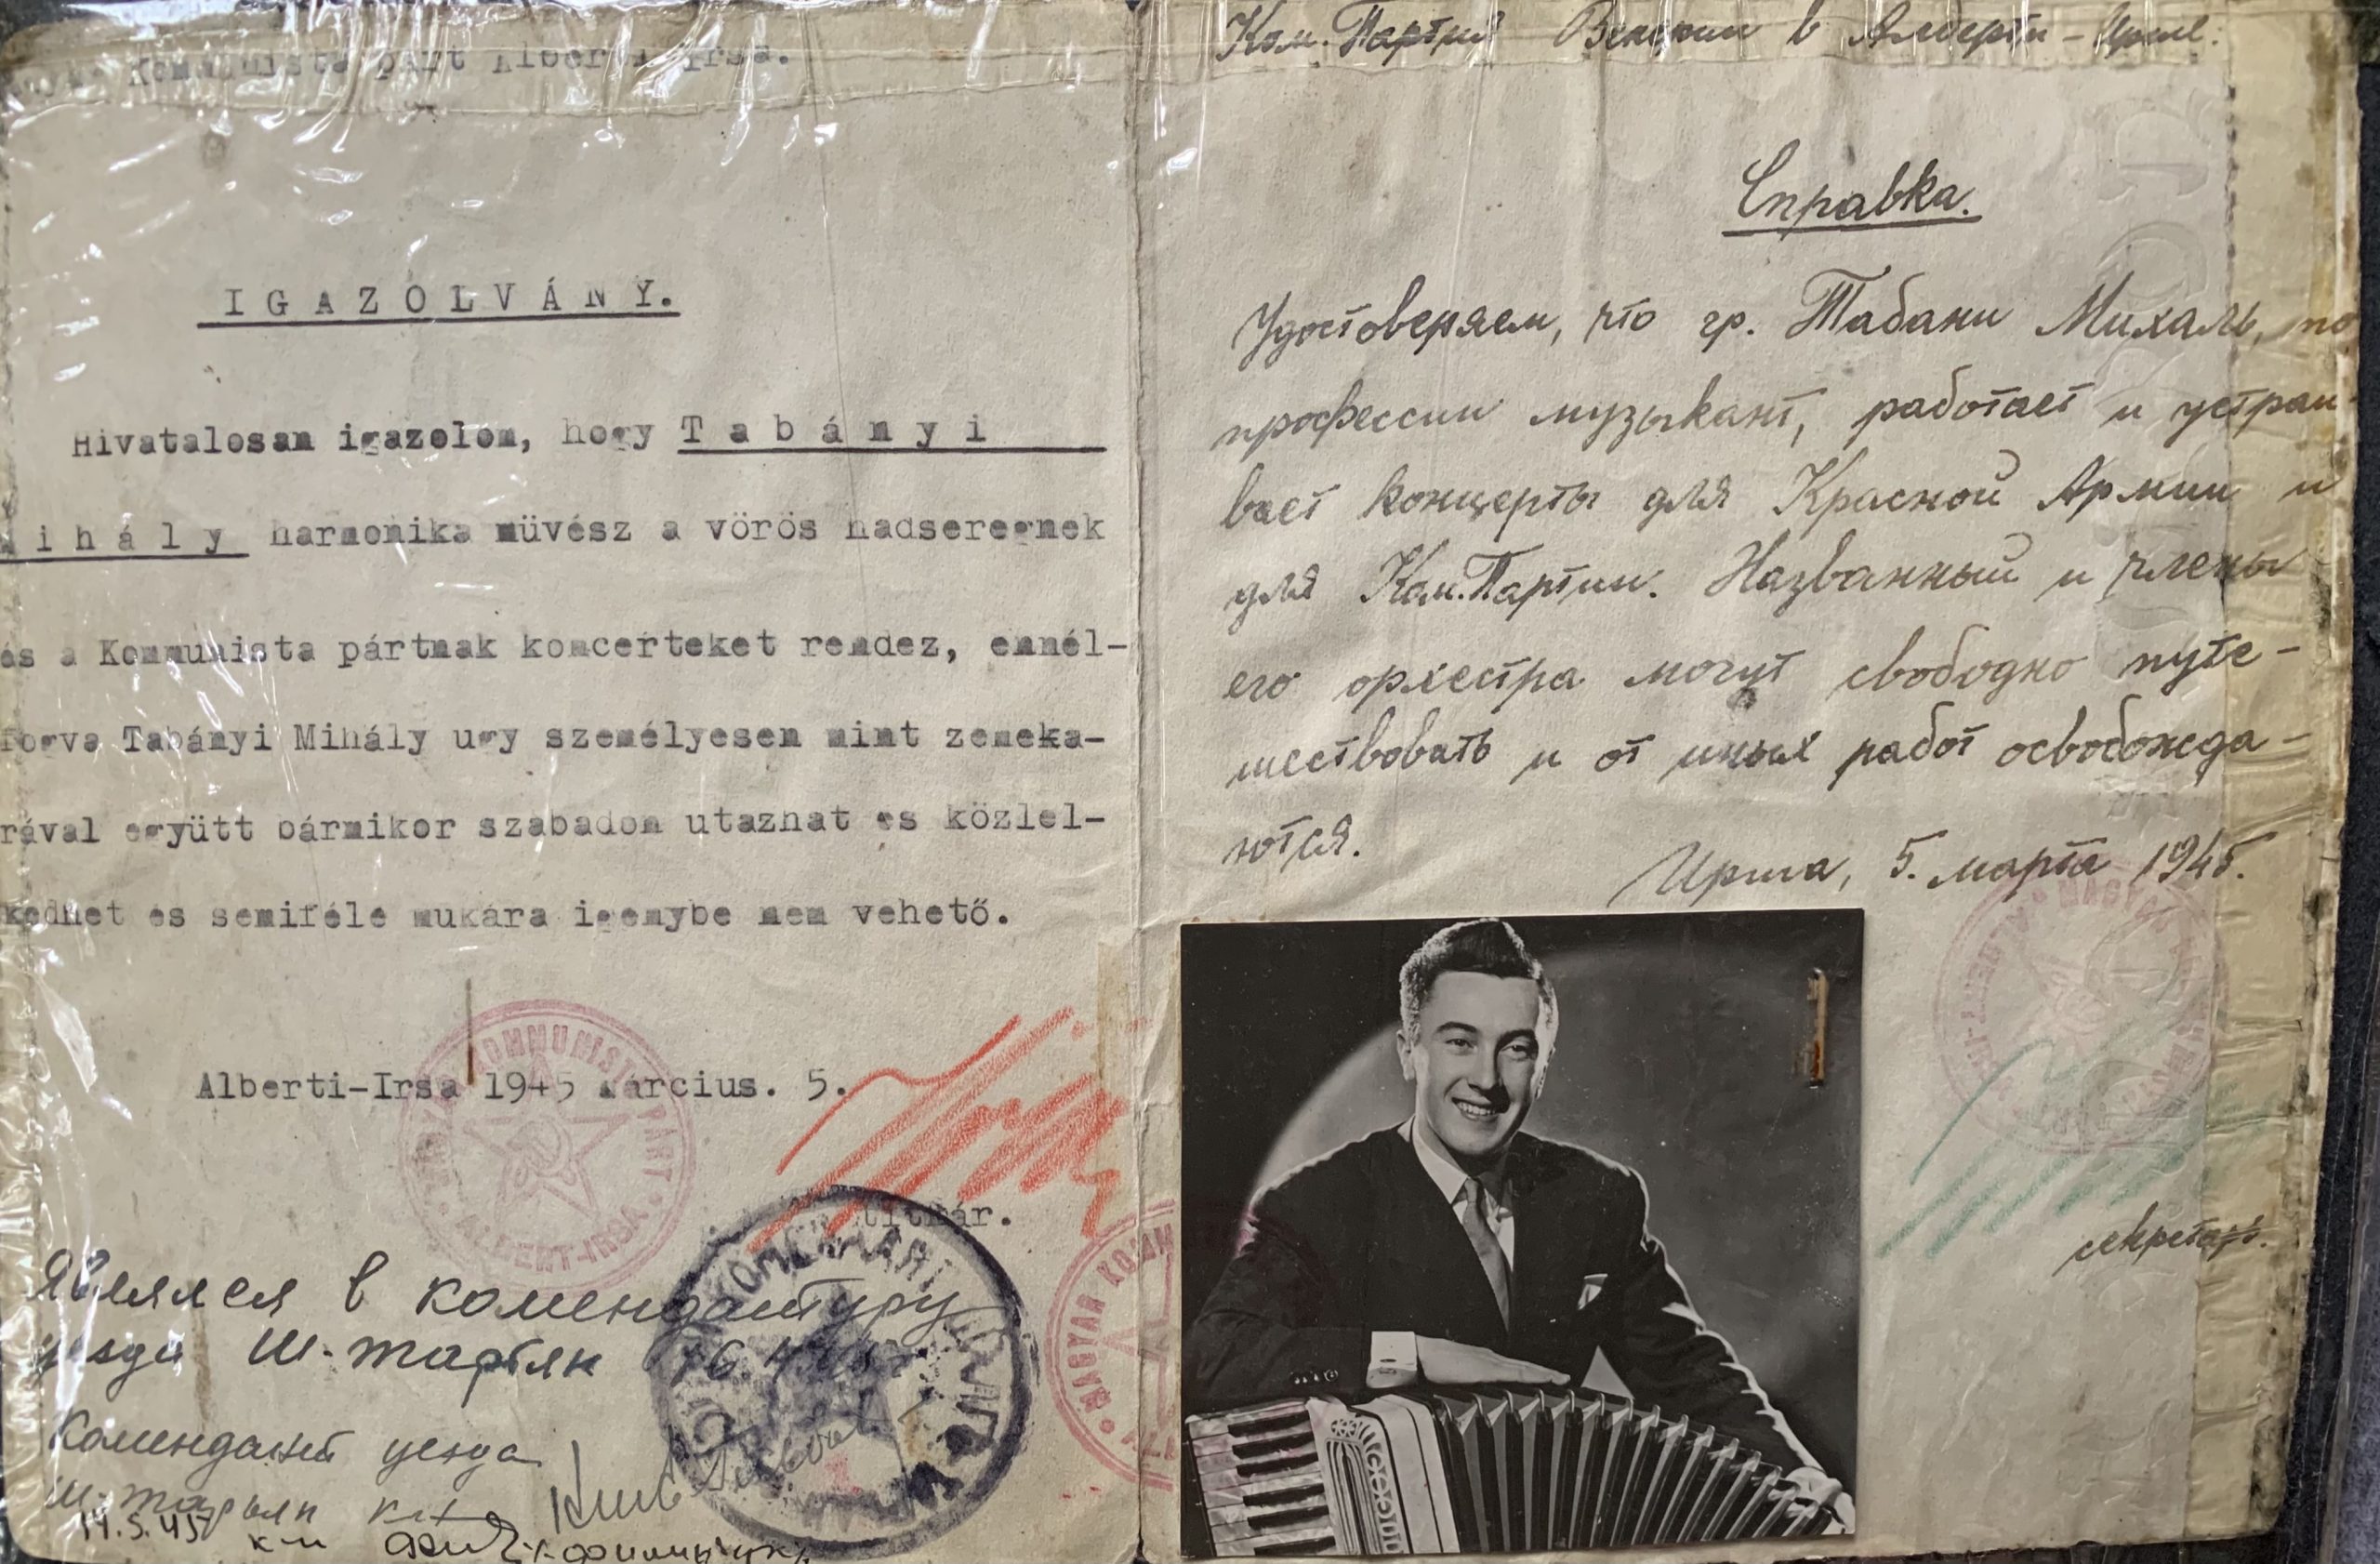 Kommunista párt Alberti Irsa.
IGAZOLVÁNY.
Hivatalosan igazolom, hogy Tabányi
Mihály harmonika müvész a vörös hadseregnek
és a Kommunista pártnak koncerteket rendez, ennél-
fogva Tabányi Mihály ugy személyesen mint zeneka-
rával együtt bármikor szabadon utazhat es közlel-
kedhet és semiféle mukára igenybe nem vehető.
Alberti-Irsa 1945 Március. 5.
titkár.
MAGYAR KOMMUNISTA PÁRT
ALBERT-IRSA
Являлся в комендатуру
уезда Ш-
Комендант уезда
14.5.45
Ком. Партия Венгрии в Алберти-Ирше.
Справка.
Удостоверяем, что гр. Табани Михаль, по
профессии музыкант, работает и устраи-
вает концерты для Красной Армии и
для Ком.Партии. Названный и члены
его орхестра могут свободно путе-
шествовать и от иных работ освобожда-
ются.
Ирша, 5. марта 1945.
секретарь.